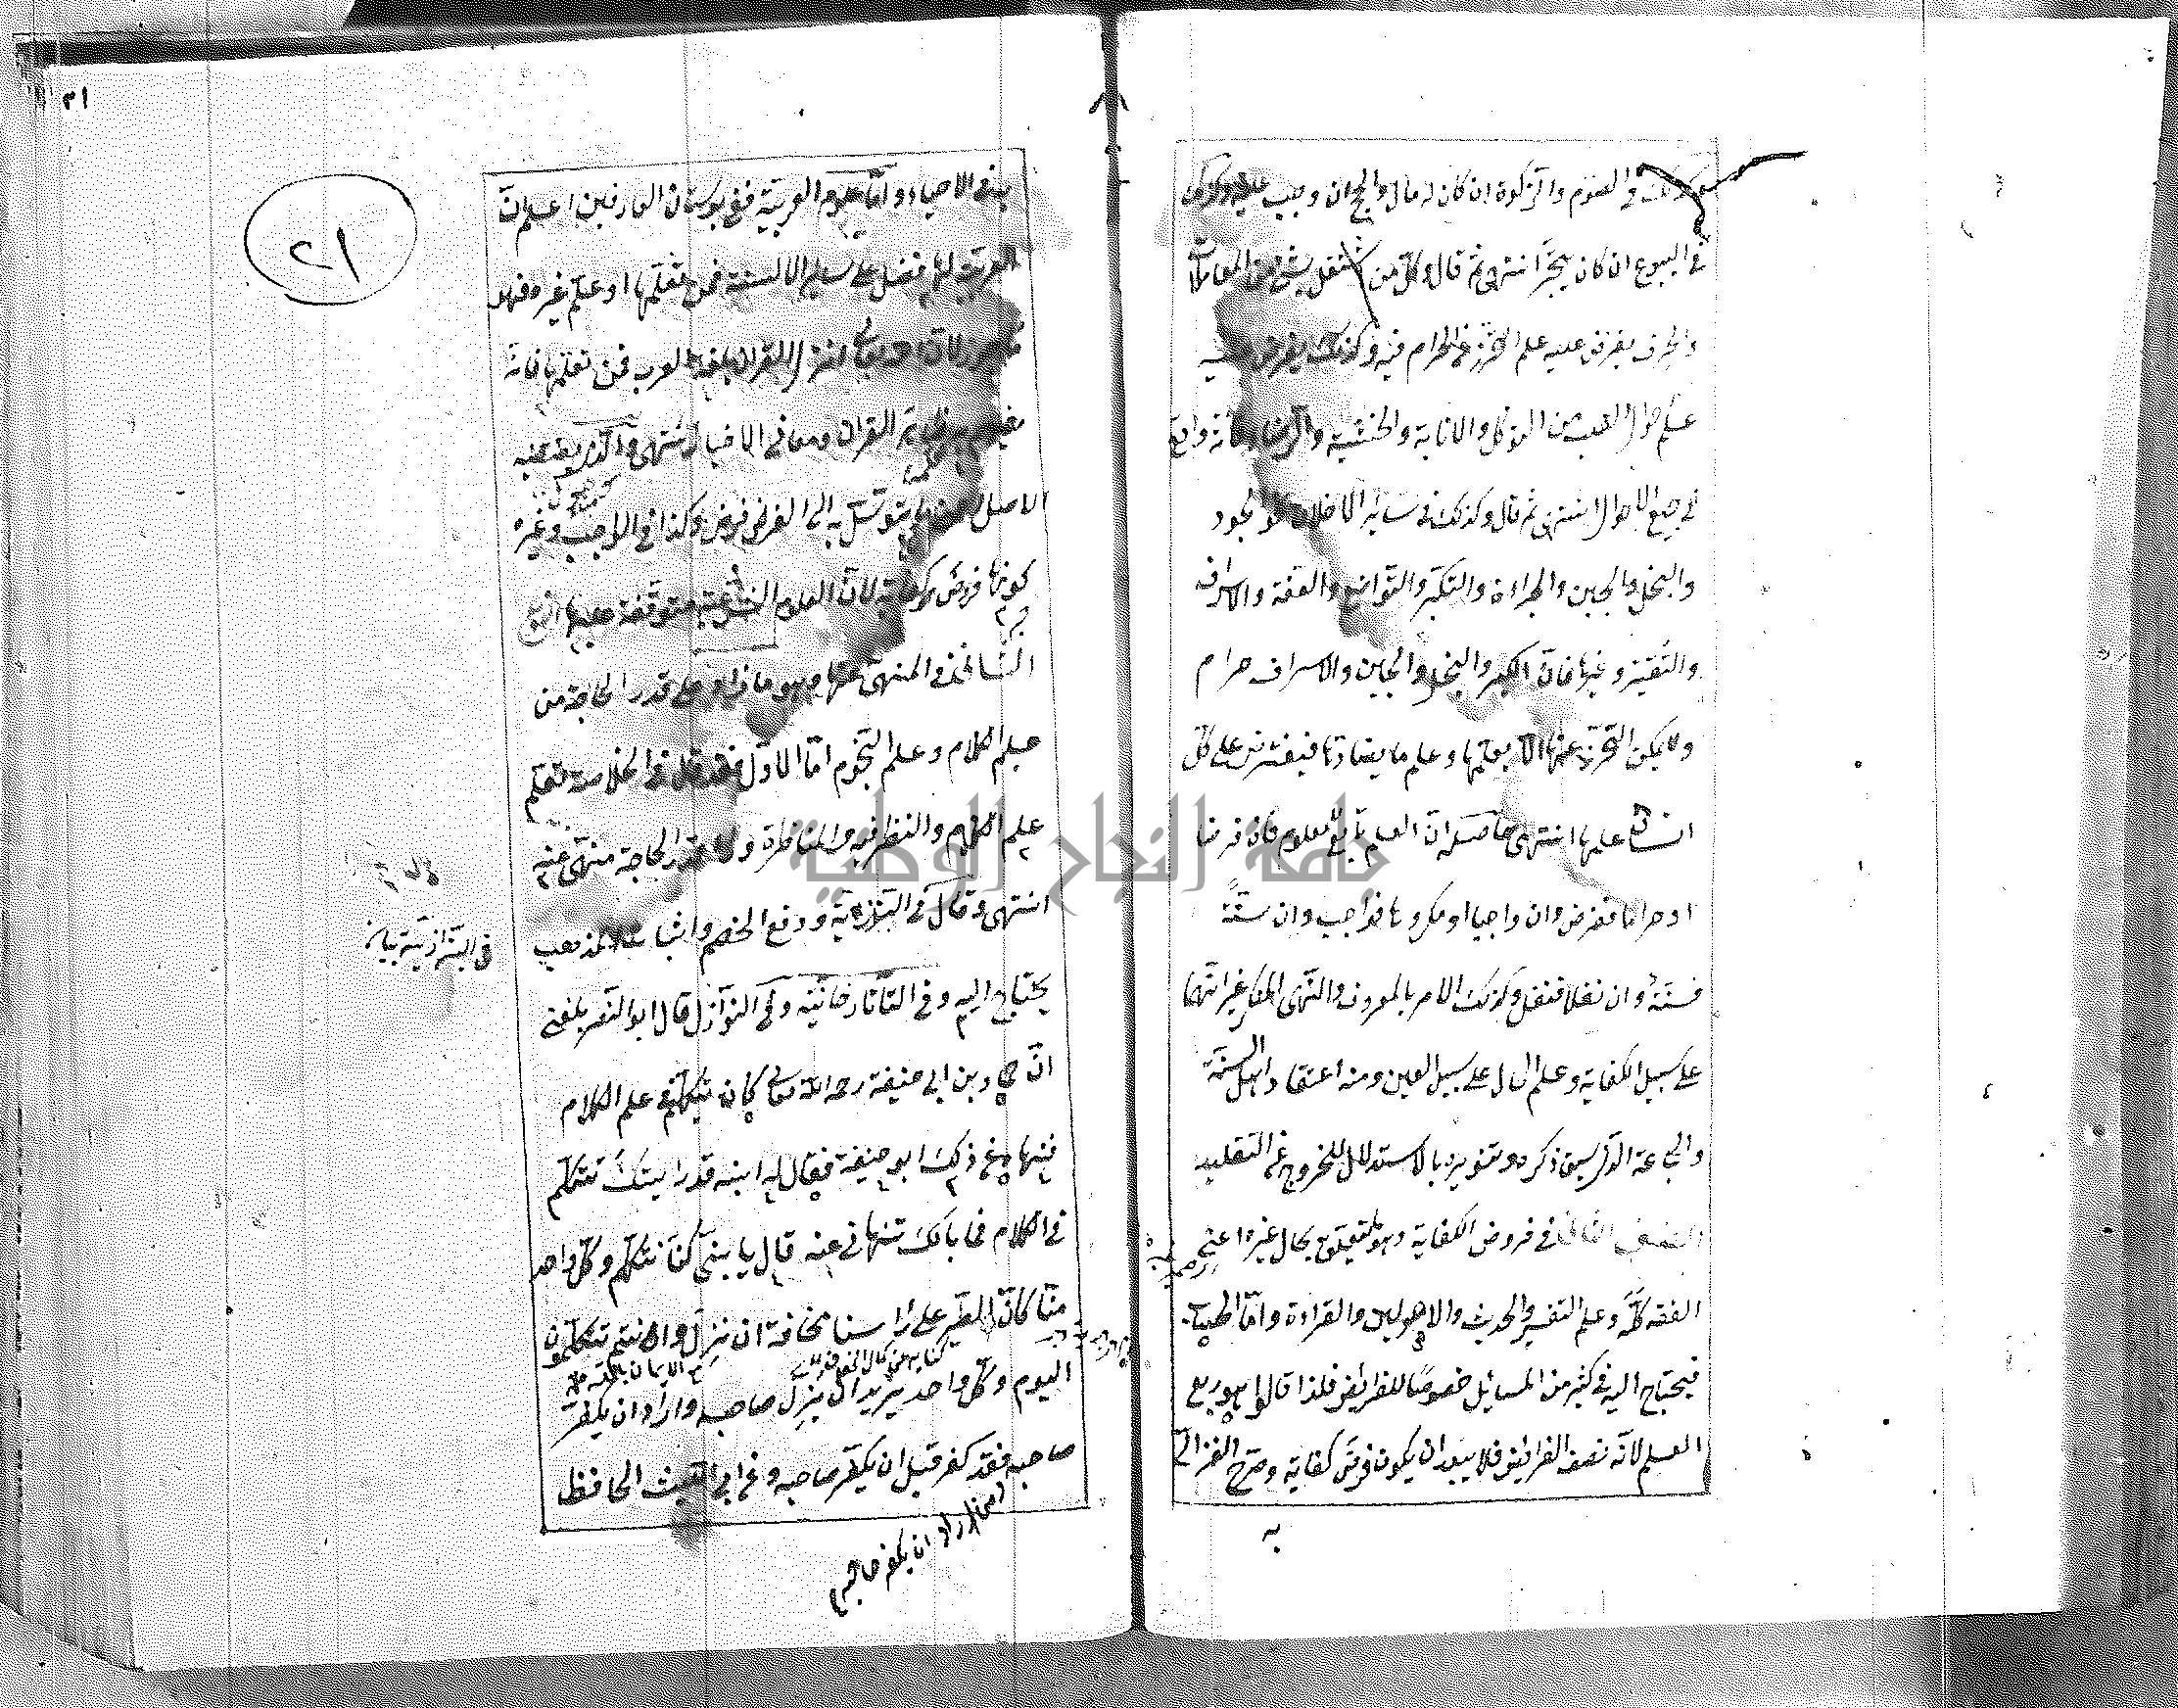 وكذلك في الصوم والزكوة ان كان له مال والحج ان وجب عليه وكذلك
في البيوع ان كان يتجر انتهى ثم قال وكل من اشتغل بشئ من المعاملات
والحرف يفرض عليه علم التحرز عن الحرام فيه وكذلك يفرض عليه
علم احوال القلب من التوكل والانابة والخشية والرضاء فانه واقع
في جميع الاحوال انتهى ثم قال وكذلك في سائر الاخلاق نحو الجود
والبخل والجبن والجراءة والتكبر والتواضع والعفة والاسراف
والتقتير وغيرها فان الكبر والبخل والجبن والاسراف حرام
ولا يمكن التحرز عنها الا بعلمها وعلم ما يضادها فيفترض على كل
انسان علمها انتهى حاصله ان العلم تابع للمعلوم فان فرضا
او حراما ففرض وان واجبا او مكروها فواجب وان سنة
فسنة وان نفلا فنفل وكذلك الامر بالمعروف والنهى المنكر غير انهما
على سبيل الكفاية وعلم الحال على سبيل العين ومنه اعتقاد اهل السنة
والجماعة الذى سبق ذكره وتنويره بالاستدلال للخروج عن التقليد
الصنف الثانى في فروض الكفاية وهو ما يتعلق بحال غيره اعنى
الفقه كله وعلم التفسير والحديث والاصولين والقراءة واما الحساب
فيحتاج اليه في كثير من المسائل خصوصا للفرائض فلذا قالوا هو ربع
العلم لانه نصف الفرائض فلا يبعد ان يكون فرض كفاية وصرح الغزالى
به
٢١
٢١
به في الاحياء واما علوم العربية ففي بوستان العارفين اعلم ان
العربية لها فضل على سائر الالسنة فمن تعلمها او علم غيره فهو
مأجور لان الله تعالى انزل القران بلغة العرب فمن تعلمها فانه
يفهم به ظاهر القران ومعانى الاخبار انتهى والذى يقتضيه
الاصل ان ما يتوسل به الى الفرض فرض وكذا في الواجب وغيره
كونها فروض كفاية لان العلوم الشرعية متوقفة عليها النوع
الثانى في المنهى عنها وهو ما زاد على قدر الحاجة من
علم الكلام وعلم النجوم اما الاول فقد قال في الخلاصة تعلم
علم الكلام والنظر فيه والمناظرة وراء قدر الحاجة منهى عنه
انتهى وقال في البزازية ودفع الخصم واثبات المذهب
في البزازية بيان
يحتاج اليه وفى التاتارخانية وفى النوازل قال ابو النصر بلغنى
ان حماد بن ابى حنيفة رحمه الله تعالى كان يتكلم في علم الكلام
فنهاه عن ذلك ابو حنيفة فقال له ابنه قد رأيتك تتكلم
في الكلام فما بالك تنهانى عنه قال يا بنى كنا نتكلم وكل واحد
منا كان الطير على رأسنا مخافة ان نزل وانتم تتكلمون
اليوم وكل واحد يريد ان يزل صاحبه واراد ان يكفر
صاحبه فقد كفر قبل ان يكفر صاحبه وعن ابى الليث الحافظ
من اراد ان يكفر صاحبه
جامعة النجاح الوطنية